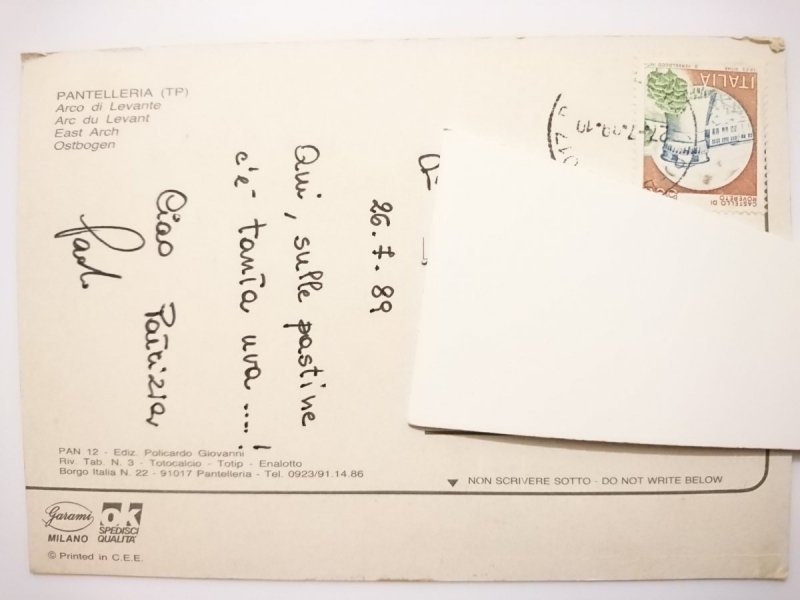 PANTELLERIA (TP)
Arco di Levante
Arc du Levant
East Arch
Ostbogen
ITALIA
CASTELLO DI
ROVERETO
27-7.89-19
26.7.89
Qui, sulle pastine
c'è tanta uva.....!
Ciao Patrizia
Paolo
PAN 12 - Ediz. Policardo Giovanni
Riv. Tab. N. 3 - Totocalcio - Totip - Enalotto
Borgo Italia N. 22 - 91017 Pantelleria - Tel. 0923/91.14.86
NON SCRIVERE SOTTO - DO NOT WRITE BELOW
Garami
MILANO
OK
SPEDISCI
QUALITÀ
© Printed in C.E.E.